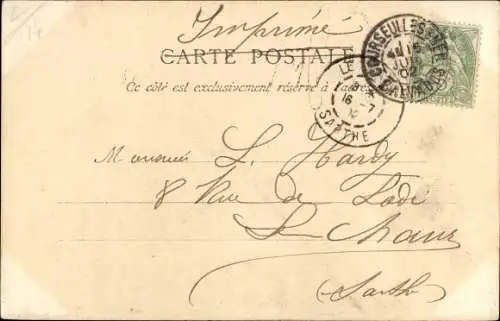 Imprimé
CARTE POSTALE
Ce côté est exclusivement réservé à l'adresse
COURSEULLES-S-MER
15
CALVADOS
LE
16 -7
SARTHE
Monsieur L. Hardy
8 Rue de Lodi
Le Mans
Sarthe
14